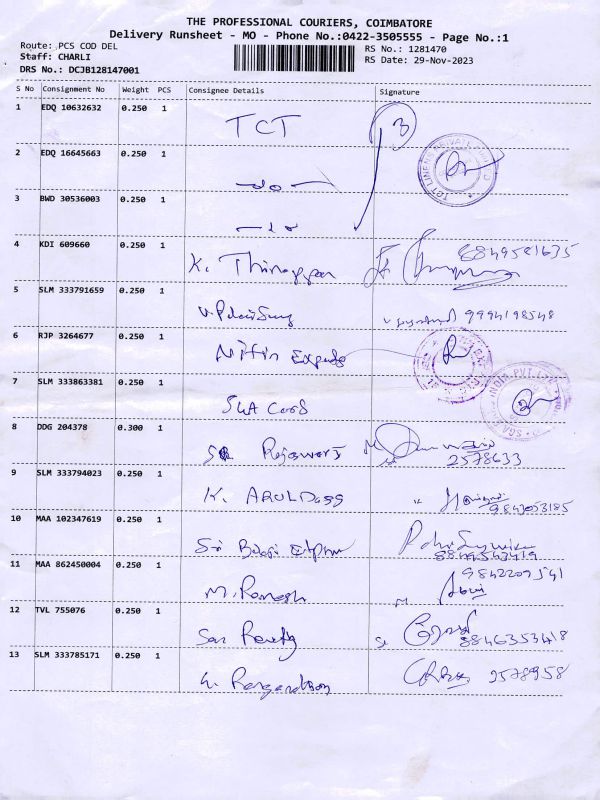 THE PROFESSIONAL COURIERS, COIMBATORE
Delivery Runsheet - MO - Phone No.:0422-3505555 - Page No.:1
Route: PCS COD DEL
Staff: CHARLI
DRS No.: DCJB128147001
RS No.: 1281470
RS Date: 29-Nov-2023
S No Consignment No Weight PCS Consignee Details Signature
1 EDQ 10632632 0.250 1 TCT 3
2 EDQ 16645663 0.250 1 -do-
3 BWD 30536003 0.250 1
4 KDI 609660 0.250 1 K. 8849581635
5 SLM 333791659 0.250 1 9994198548
6 RJP 3264677 0.250 1 Nifin
7 SLM 333863381 0.250 1
INDIA PVT. LTD
8 DDG 204378 0.300 1 2578633
9 SLM 333794023 0.250 1 K. 9843053185
10 MAA 102347619 0.250 1 Sri 8849543419
11 MAA 862450004 0.250 1 M. Ramesh 9842209541
12 TVL 755076 0.250 1 8846353418
13 SLM 333785171 0.250 1 2578958